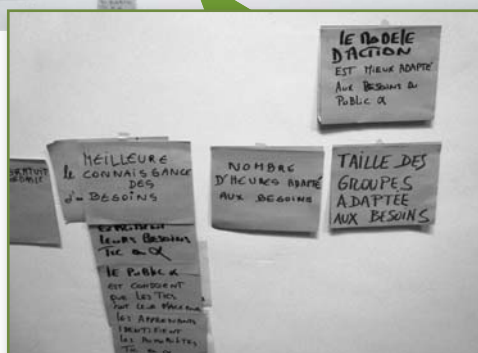 LE MODELE
D'ACTION
EST MIEUX ADAPTÉ
AUX BESOINS DU
PUBLIC α
GRATUIT
MEILLEURE
CONNAISSANCE
DES
BESOINS
NOMBRE
D'HEURES ADAPTÉ
AUX BESOINS
TAILLE DES
GROUPES
ADAPTÉE
AUX BESOINS
EXPRIMENT
LEURS BESOINS
TIC EN α
LE PUBLIC α
EST CONSCIENT
QUE LES TICS
ONT LEUR PLACE EN
LES APPRENANTS
IDENTIFIENT
LES
TIC EN α